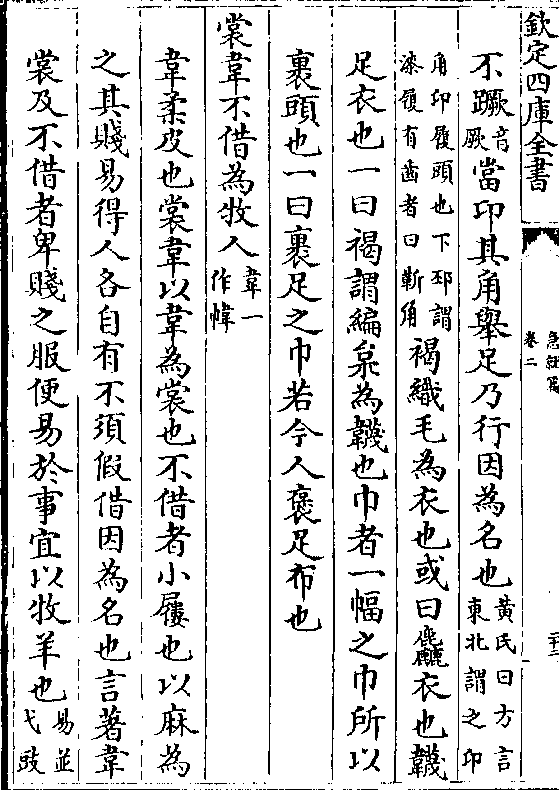 欽定四庫全書
急就篇
卷二
不蹶音厥當卬其角舉足乃行因為名也黃氏曰方言東北謂之卬
角卬履頭也下邳謂漆履有齒者曰靳角褐織毛為衣也或曰麤衣也韤
足衣也一曰褐謂編枲為韤也巾者一幅之巾所以
裹頭也一曰裹足之巾若今人裹足布也
裳韋不借為牧人韋一作幃
韋柔皮也裳韋以韋為裳也不借者小屨也以麻為
之其賤易得人各自有不須假借因為名也言著韋
裳及不借者卑賤之服便易於事宜以牧羊也易並弋豉